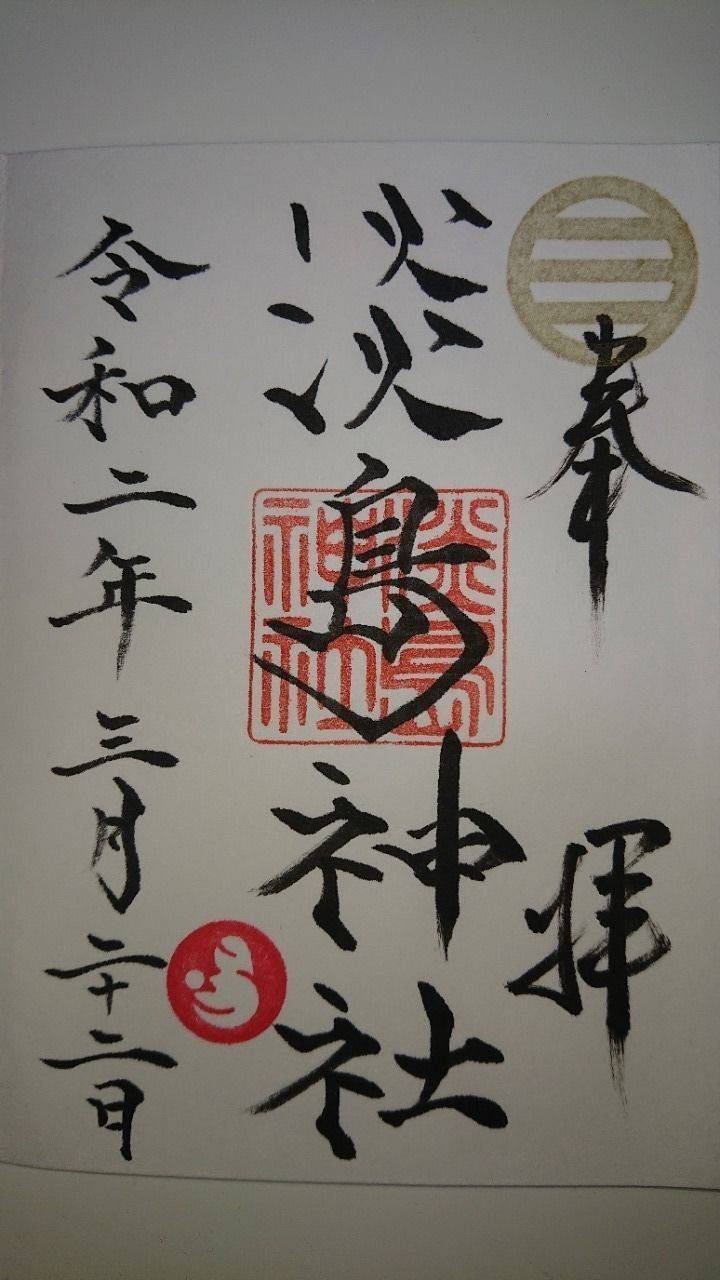 奉拝
淡島神社
淡島神社
令和二年三月二十二日